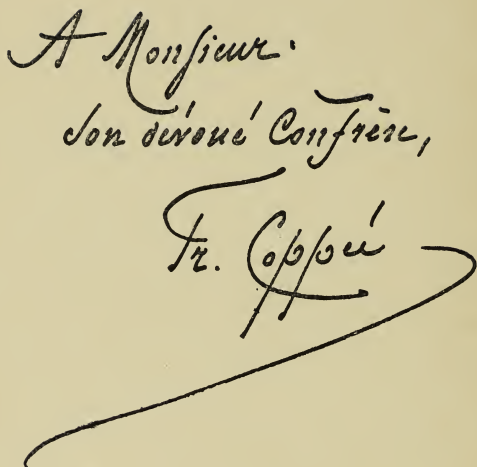 A Monsieur.
Son dévoué Confrère,
Fr. Coppée